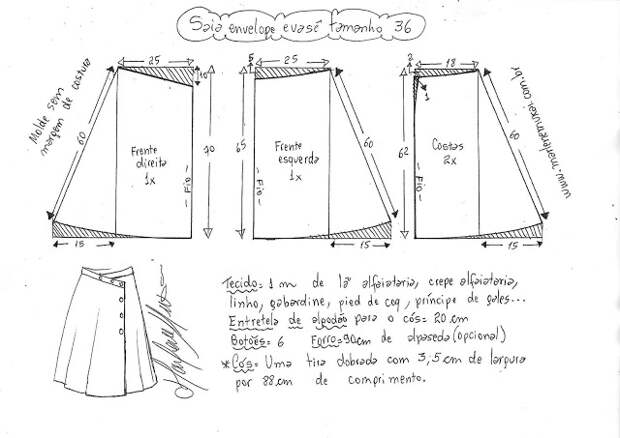 Saia envelope evasê tamanho 36
Molde sem
margem de costura
25
10
60
70
Frente
direita
1x
Fio
15
5
25
65
60
Frente
esquerda
1x
Fio
15
2
18
1
62
60
Costas
2x
Fio
15
www.marlenemukai.com.br
Tecido = 1 m de lã alfaiataria, crepe alfaiataria,
linho, gabardine, pied de coq, príncipe de gales...
Entretela de algodão para o cós = 20 cm
Botões = 6 Forro = 90cm de alpaseda (opcional)
*Cós = Uma tira dobrada com 3,5 cm de largura
por 88 cm de comprimento.